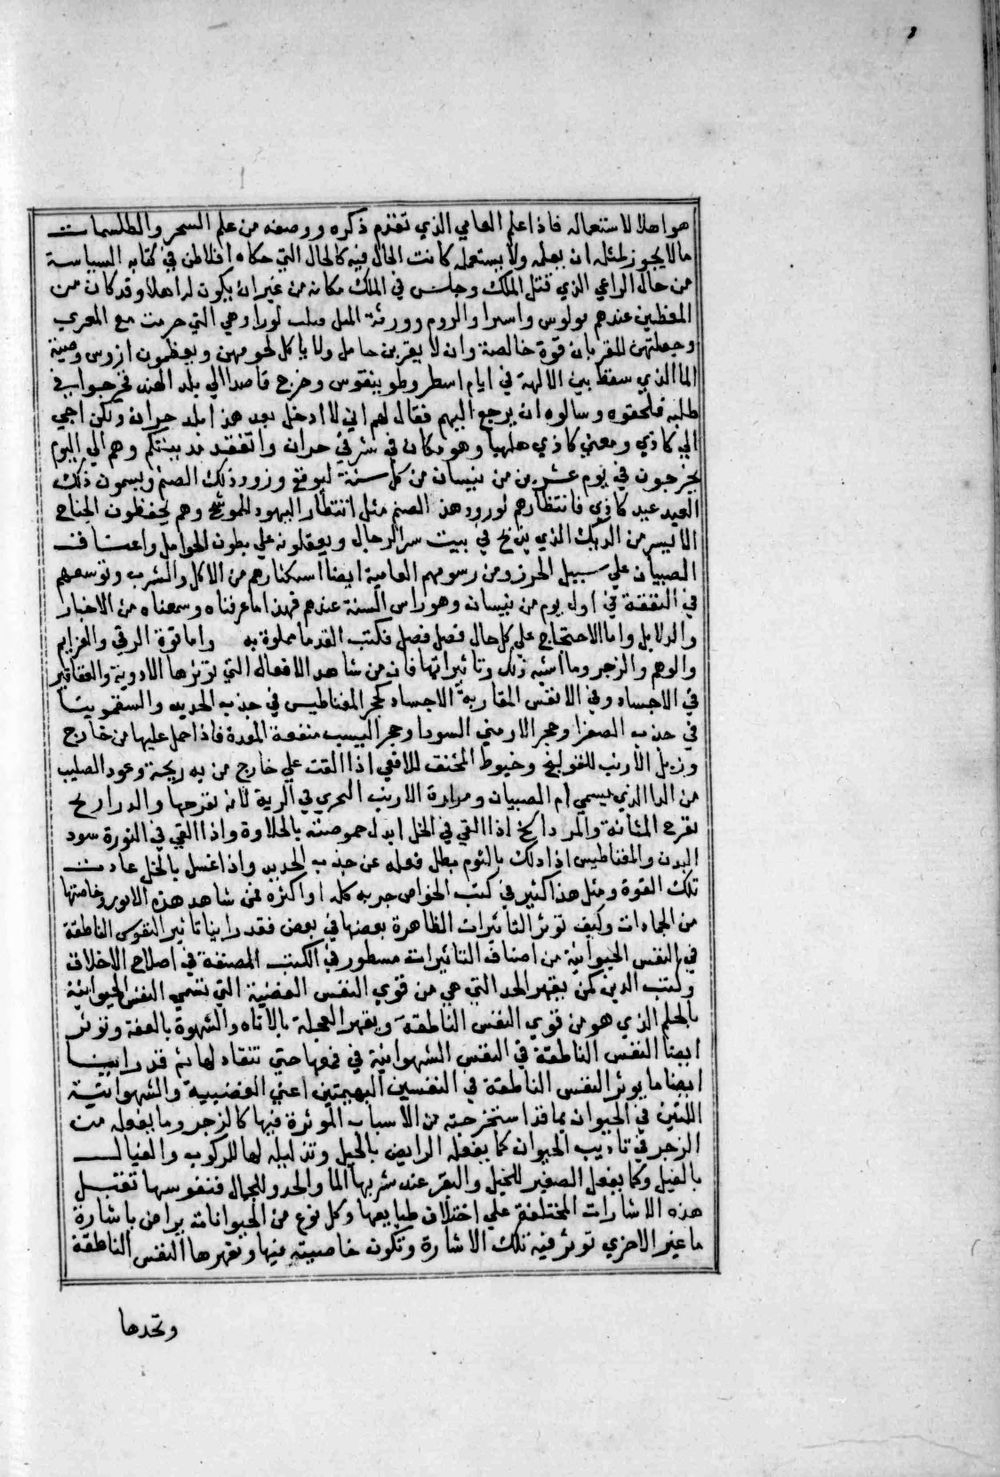 هو اهلا لاستعماله فاذا علم العامي الذي تقدم ذكره ووصفه من علم السحر والطلسمات
مالا يجوز لمثله ان يعلمه ولا يستعمله كانت الحال فيه كالحال التي حكاه افلاطن في كتابه السياسة
من حال الراعي الذي قتل الملك وجلس في الملك مكانه من غير ان يكون له اهلا وقد كان من
المعظمين عندهم واسرا والروم وورثة الميل التي حرمت مع المعري
وجعلتهن للقربان قوة خالصة وان لا يقربن حامل ولا ياكل لحومهن ويعظمون ازوس وصية
الما الذي سقط بين الالهة في ايام اسطر وطوبنقوس وخرج قاصدا الي بلد الهند فخرجوا في
طلبه فلحقوه وسالوه ان يرجع اليهم فقال لهم اني لا ادخل بعد هذا بلد حران ولكن اجي
الي كاذي ومعني كاذي هلهيا وهو مكان في شرقي حران واتفقد مدينتكم وهم الي اليوم
يخرجون في يوم عشرين من نيسان من كل سنة ليوقع ورود ذلك الصنم ويسمون ذلك
العيد عيد كاذي فانتظارهم لورود هذا الصنم مثل انتظار اليهود للموشيح وهم يحفظون الجناح
الايسر من الديك الذي يذبح في بيت سر الرجال ويعقلونه علي بطون الحوامل واعناق
الصبيان علي سبيل الحرز ومن رسومهم العامية ايضا استكثارهم من الاكل والشرب وتوسعهم
في النفقة في اول يوم من نيسان وهو راس السنة عندهم فهذا ما عرفناه وسمعناه من الاخبار
والدلايل واما الاحتجاج علي كل حال فصل فصل فكتب القدما مملوة به واما قوة الرقي والعزايم
والوهم والزجر وما اشبه ذلك وتاثيراتها فان من شاهد الافعال التي توثرها الادوية والعقاقير
في الاجساد وفي الانفس المقاربة الاجساد كحجر المغناطيس في جذب الحديد والسقمونيا
في جذب الصفرا وحجر الارمني السودا وحجر اليسب منفعة المعدة فاذا حمل عليها من خارج
وزبل الارنب للقولنج وخيوط المخنق للافعي اذا القت علي خارج من به ريحة وعود الصليب
من الدا الذي يسمي ام الصبيان ومرارة الارنب البحري في الرية لانه تقرحها والدراريح
تقرح المثانة والمرداسخ اذا القي في الخل ابدل حموضته بالحلاوة واذا القي في النورة سود
البدن والمغناطيس اذا دلك بالثوم بطل فعله عن جذب الحديد واذا غسل بالخل عادت
تلك القوة ومثل هذا كثير في كتب الخواص جربه كله او اكثره فمن شاهد هذه الامور وخاصتها
من الجمادات وكيف توثر التاثيرات الظاهرة بعضها في بعض فقد راينا تاثير النفوس الناطقة
في النفس الحيوانية من اصناف التاثيرات مسطور في الكتب المصنفة في اصلاح الاخلاق
وكتب الدين كمن يقهر الحد التي هي من قوي النفس الغضبية التي تسمي النفس الحيوانية
بالحلم الذي هو من قوي النفس الناطقة ويقهر العجلة بالاناه والشهوة بالعفة وتوثر
ايضا النفس الناطقة في النفس الشهوانية في قمعها حتي تنقاد لها ثم قد راينا
ايضا ما يوثر النفس الناطقة في النفسين البهيمتين اعني الغضبية والشهوانية
اللتين في الحيوان بما قد استخرجته من الاسباب الموثرة فيها كالزجر وما يفعله من
الزجر في تاديب الحيوان كما يفعله الرايض بالخيل وتذليله لها للركوب والفيال
بالفيل وكما يفعل الصفير للخيل والبقر عند شربها الما والحدو للجمال فنفوسها تقتبل
هذه الاشارات المختلفة علي اختلاف طبايعها وكل نوع من الحيوانات يراض باشارة
ما غير الاخري توثر فيه تلك الاشارة وتكون خاصيته فيها وتقهرها النفس الناطقة
وتحدها